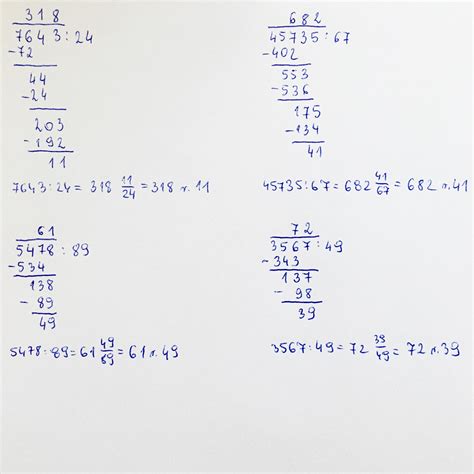 318
7643:24
-72
44
-24
203
-192
11
7643:24 = 318 11/24 = 318 r. 11
682
45735:67
-402
553
-536
175
-134
41
45735:67 = 682 41/67 = 682 r. 41
61
5478:89
-534
138
- 89
49
5478:89 = 61 49/89 = 61 r. 49
72
3567:49
-343
137
- 98
39
3567:49 = 72 39/49 = 72 r. 39